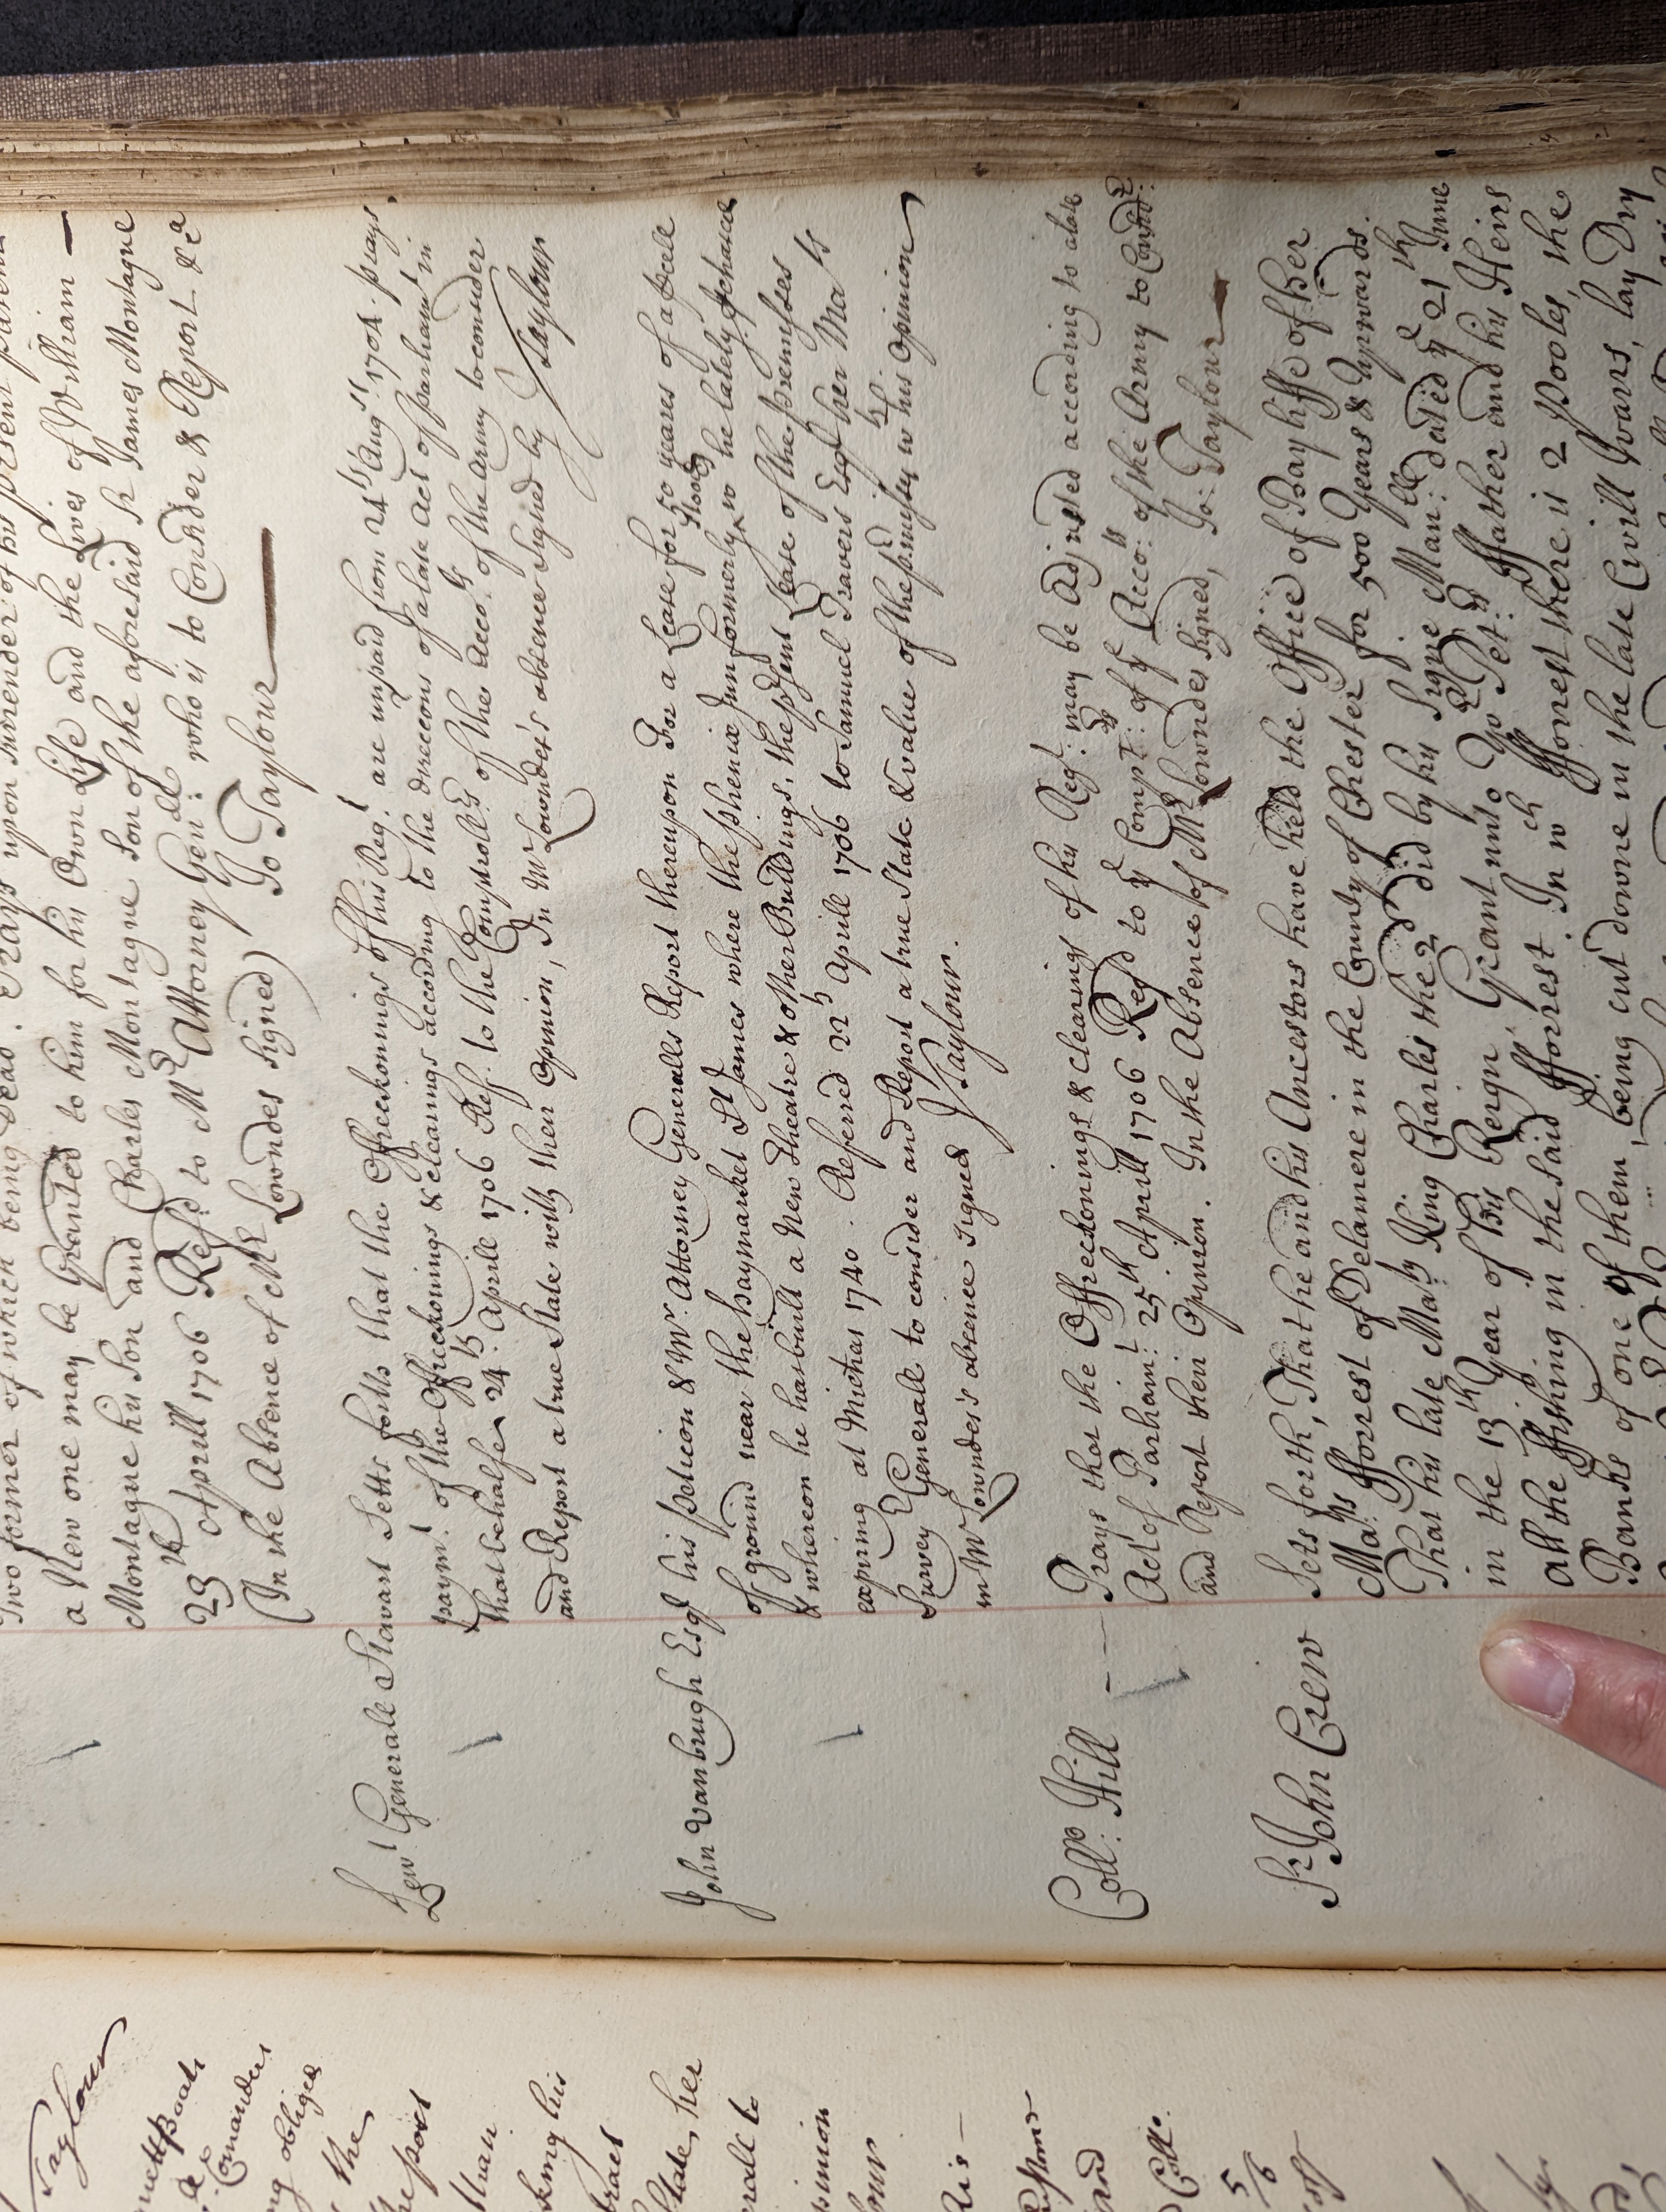 Two former of which being Dead. Prays upon surrender of his present
a New one may be Granted to him for his Own Life and the Lives of William
Montague his Son and Charles Montague Son of the aforesaid Sr James Montague
23th Aprill 1706 Refd to Mr Attorney Genll: who is to Consider & Report &ca
(In the Absence of Mr Lowndes signed) Jo Taylour
Lewt Generall Stewart Setts forth that the Offreckonings of his Regt are unpaid from 24th Augt 1704. prays
paymt. of the Offreckonings & clearings according to the direccons of a late Act of parliamt in
that behalfe 24th: Aprile 1706 Ref. to the Comptrollrs of the Accots. of the Army to consider
and Report a true State with their Opinion, In Mr Lowndes's absence signed by J Taylour
John Vanbrugh Esqr his peticon & Mr. Attorney Generalls Report thereupon For a Lease for 50 years of a peece
of ground near the haymarket St James where the phenix Inn formerly stood wch he lately purchaced
& whereon he has built a New Theatre & other Buildings, the present Lease of the premisses
expiring at Michas 1740. Referred 22th Aprile 1706 to Samuel Travers Esqr her Mats
Survey Generale to consider and Report a true State & value of the premisses wth his Opinion
in Mr Lowndes's absence signed J Taylour.
Collo: Hill Prays that the Offreckonings & Clearings of his Regt: may be Adjusted according to a late
Act of Parliamt: 25th Aprill 1706 Refd to ye Comptrs: of ye Accots: of the Army to Considr:
and Report their Opinion. In the Absence of Mr Lowndes signed, Jo: Taylour
Sr John Crew Sets forth, That he and his Ancestors have held the Office of Bayliffe of her
Mats: fforrest of Delamere in the County of Chester for 500 Years & Upwards.
That his late Maty King Charles the 2d did by his Signe Manll: dated ye 21th June
in the 13th Year of his Reign Grant unto Yo Petrs: ffather and his Heirs
all the ffishing in the said fforrest. In wch fforrest there is 2 Pooles, the
Banks of one of them, being cut downe in the late Civill Warrs, lay Dry
Taylour
Boats
Comanders
obliged
the
than
king his
State, her
rall to
pinion
lour
Coll: